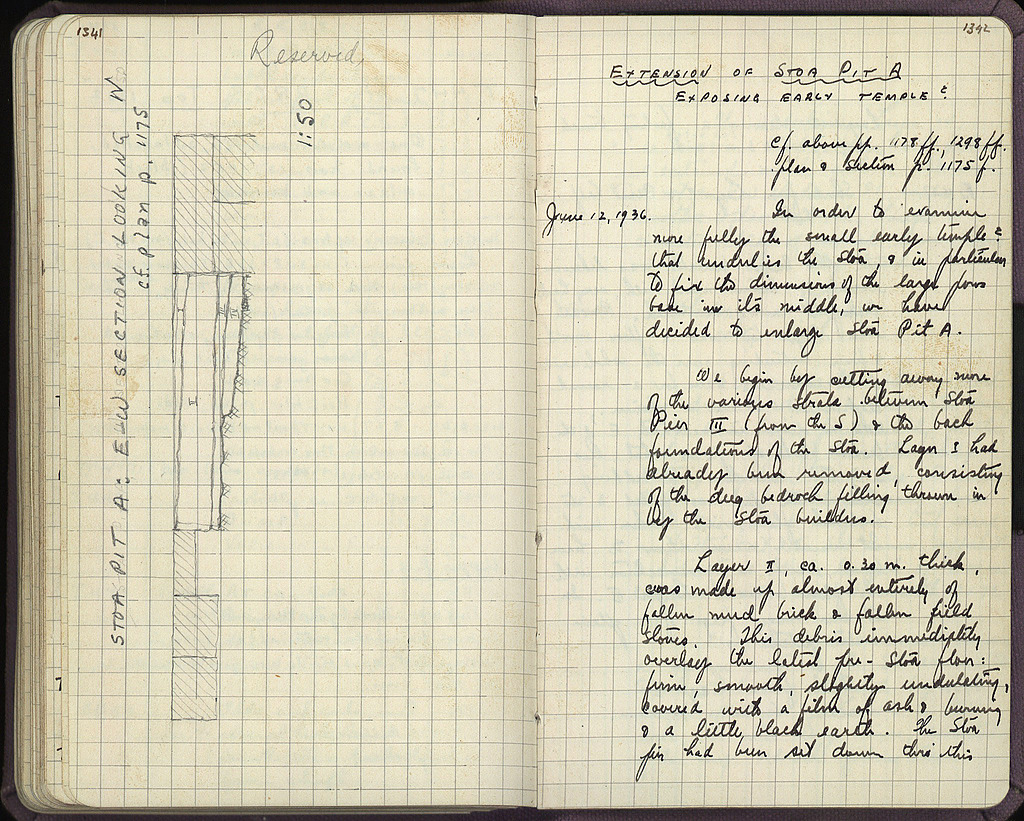 1341
Reserved
STOA PIT A: E-W SECTION LOOKING N
cf. plan p. 1175
1:50
I
II
III
IV
1342
EXTENSION OF STOA PIT A
EXPOSING EARLY TEMPLE?
cf. above pp. 1178 ff., 1298 ff.
plan & section p. 1175 f.
June 12, 1936.
In order to examine
more fully the small early temple?
that underlies the Stoa, & in particular
to fix the dimensions of the large poros
base in its middle, we have
decided to enlarge Stoa Pit A.
We begin by cutting away more
of the various strata between Stoa
Pier III (from the S) & the back
foundations of the Stoa. Layer I had
already been removed, consisting
of the deep bedrock filling thrown in
by the Stoa builders.
Layer II, ca. 0.30 m. thick,
was made up almost entirely of
fallen mud brick & fallen field
stones. This debris immediately
overlay the latest pre-Stoa floor:
firm, smooth, slightly undulating,
covered with a film of ash & burning
& a little black earth. The Stoa
pier had been set down thro this